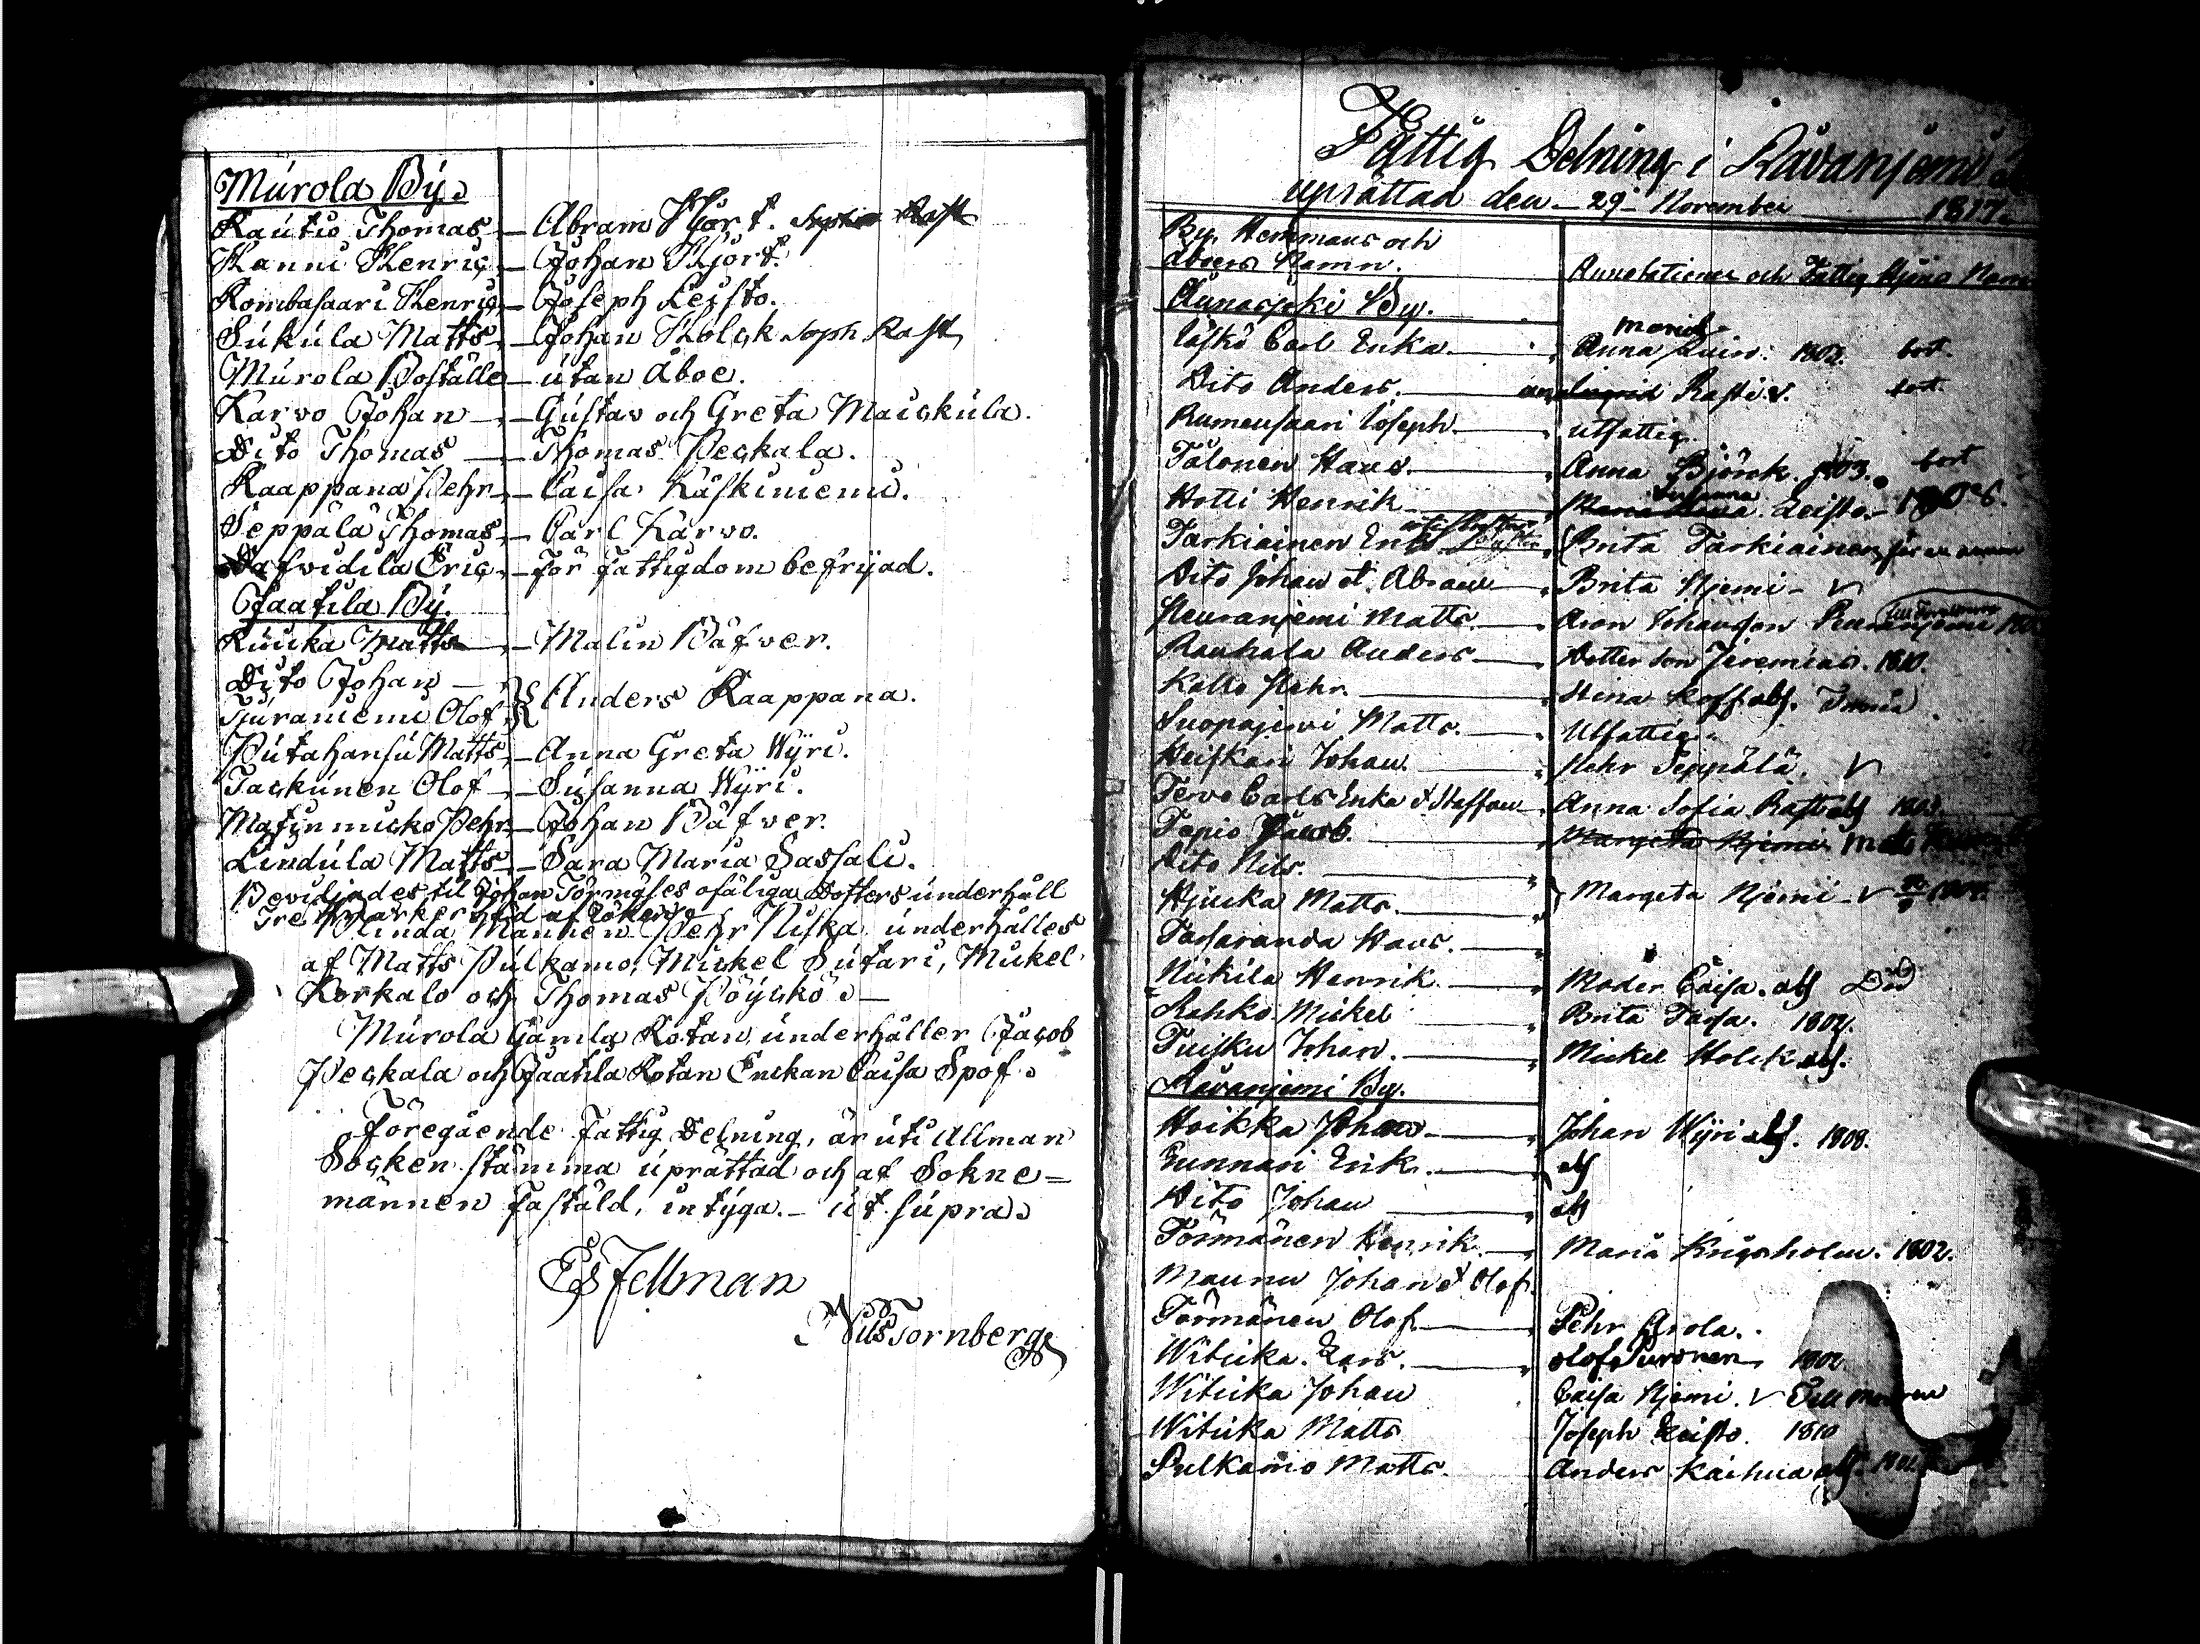 Murola By.
Rautio Thomas — Abram Hjort. Sophia Rast
Hanni Henric — Johan Hjort.
Kombasaari Henric — Joseph Leisto.
Sukula Matts — Johan Holck Soph Rast
Murola Boställe — utan Åboe.
Karvo Johan — Gustav och Greta Maickula.
Dito Thomas — Thomas Peckala.
Kaappana Pehr — Caisa Käskiniemi.
Seppälä Thomas — Carl Karvo.
Dafvidila Eric — För fattigdom befrijad.
Jaatila By.
Kuicka Matts — Malin Bäfver.
Dito Johan —
Sjuraniemi Olof } Anders Kaappana.
Putahansu Matts — Anna Greta Wyri.
Tackunen Olof — Susanna Wyri.
Matinmicko Pehr — Johan Bäfver.
Lindula Matts — Sara Maria Sassali.
Beviljades til Johan Törmäses ofäliga Dotters underhåll
Tre Marker af Söken
Blinda Mannen Pehr Niska underhålles
af Matts Pulkamo, Mickel Sutari, Mickel
Korkalo och Thomas Pöyckö.—
Murola Gamla Rotan underhåller Jacob
Peckala och Jaatila Rotan Enckan Caisa Spof.
Föregående Fattig Delning, är uti Allman
Socken stämma uprättad och af Sokne=
männen Fastäld, intyga.— ut supra.
Es Fellman
Nils Tornberg
Fattig Delning i Råvanjemi
uprättad den 29 November 1817.
By, Hemmans och
Åboers Namn.
Annotationer och Fattig Hjons Namn
Aunasjoki By.
Löskö Carl Enka. — Anna Maria 1802. bort.
Dito Anders. — Rasti. bort.
Rumensaari Joseph. — utfattig.
Tälonen Hans. — Anna Björck 1803. bort
Hotti Henrik — Susanna Leisto. 1806.
Tarkiainen Erik — Brita Tarkiainen
Dito Johan et Abram — Brita Njemi
Neuranjemi Matts. — Aron Johansson
Rauhala Anders — Dotter son Jeremias. 1810.
Kallo Pehr. — Stina Koff
Suopajervi Matts. — Utfattig
Heiskari Johan. — Pehr Seppälä.
Tervo Carls Enka & Staffan — Anna Sofia Rast 1803.
Tapio Jacob. — Margeta Njemi
Dito Nils.
Hjucka Matts. } Margeta Njemi
Tarsaranda Hans.
Nickila Henrik. — Moder Caisa. Död
Rahko Mickel — Brita Tarsa. 1802.
Tuisku Johan. — Mickel Holck
Råvanjemi By.
Hoikka Johan — Johan Wyri 1808.
Gunnari Erik.
Dito Johan
Törmänen Henrik — Maria Krigsholm. 1802.
Maunu Johan & Olof
Törmänen Olof. — Pehr Arola.
Witicka Lars. — Olof Suronen 1802.
Witicka Johan — Caisa Njemi. Till modren
Witicka Matts — Joseph Leisto. 1810
Pulkamo Matts. — Anders Kaihua